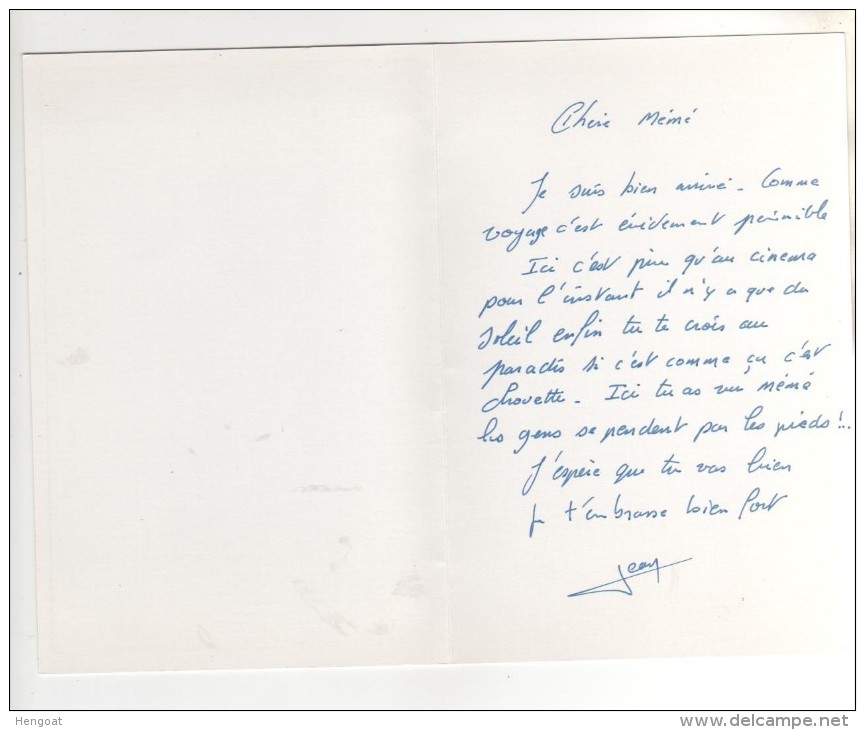 Chère Mémé
Je suis bien arrivé - Comme
voyage c'est évidement pénible
Ici c'est pire qu'au cinema
pour l'instant il n'y a que du
soleil enfin tu te crois au
paradis si c'est comme ça c'est
chouette - Ici tu as vu Mémé
les gens se pendent par les pieds !..
J'espère que tu vas bien
Je t'embrasse bien fort
Jean
Hengoat
www.delcampe.net